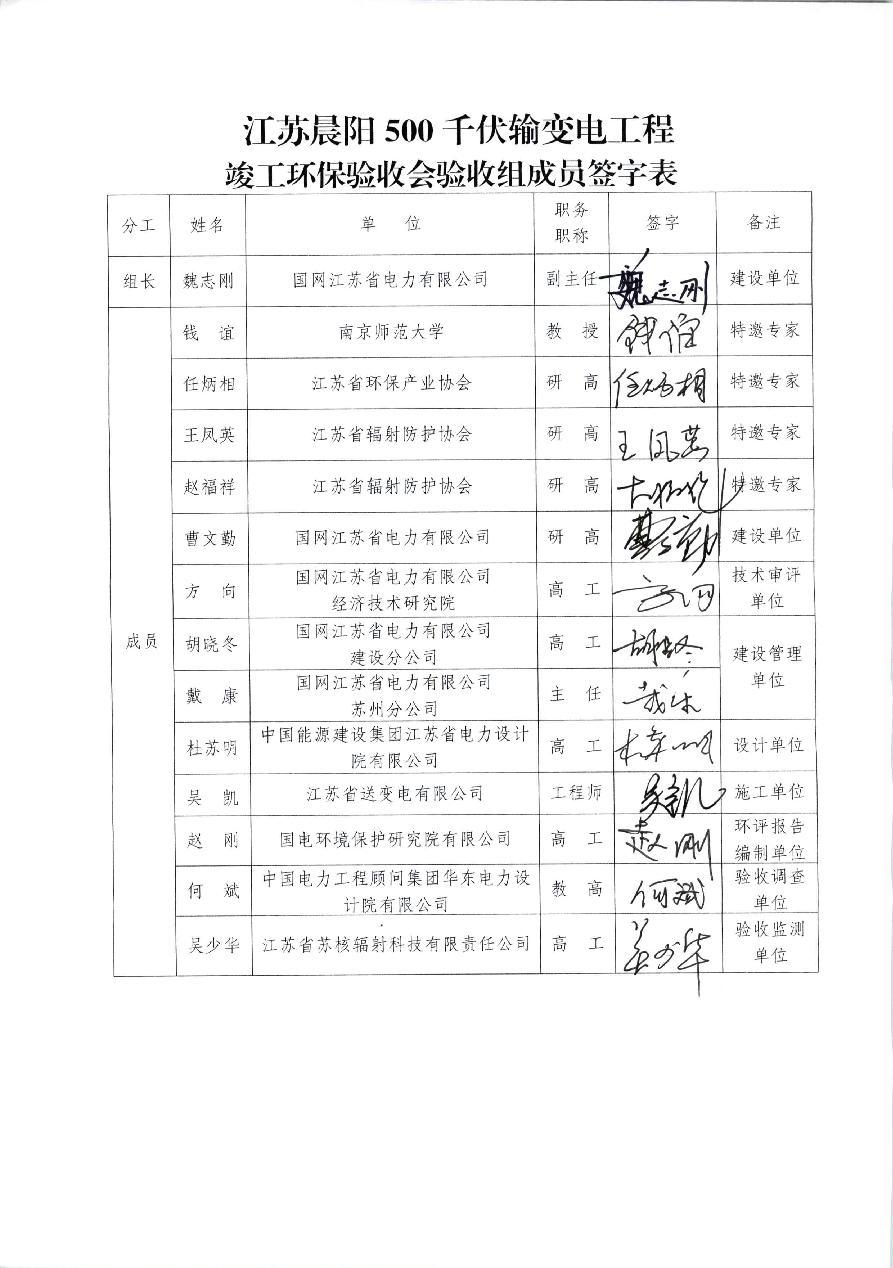 江苏晨阳 500 千伏输变电工程
竣工环保验收会验收组成员签字表
分工 姓名 单 位 职务职称 签字 备注
组长 魏志刚 国网江苏省电力有限公司 副主任 魏志刚 建设单位
成员
钱 谊 南京师范大学 教 授 钱谊 特邀专家
任炳相 江苏省环保产业协会 研 高 任炳相 特邀专家
王凤英 江苏省辐射防护协会 研 高 王凤英 特邀专家
赵福祥 江苏省辐射防护协会 研 高 特邀专家
曹文勤 国网江苏省电力有限公司 研 高 曹文勤 建设单位
方 向 国网江苏省电力有限公司 高 工 方向 技术审评
经济技术研究院 单位
胡晓冬 国网江苏省电力有限公司 高 工 胡晓冬 建设管理
建设分公司 单位
戴 康 国网江苏省电力有限公司 主 任 戴康
苏州分公司
杜苏明 中国能源建设集团江苏省电力设计 高 工 杜苏明 设计单位
院有限公司
吴 凯 江苏省送变电有限公司 工程师 吴凯 施工单位
赵 刚 国电环境保护研究院有限公司 高 工 赵刚 环评报告
编制单位
何 斌 中国电力工程顾问集团华东电力设 教 高 何斌 验收调查
计院有限公司 单位
吴少华 江苏省苏核辐射科技有限责任公司 高 工 吴少华 验收监测
单位